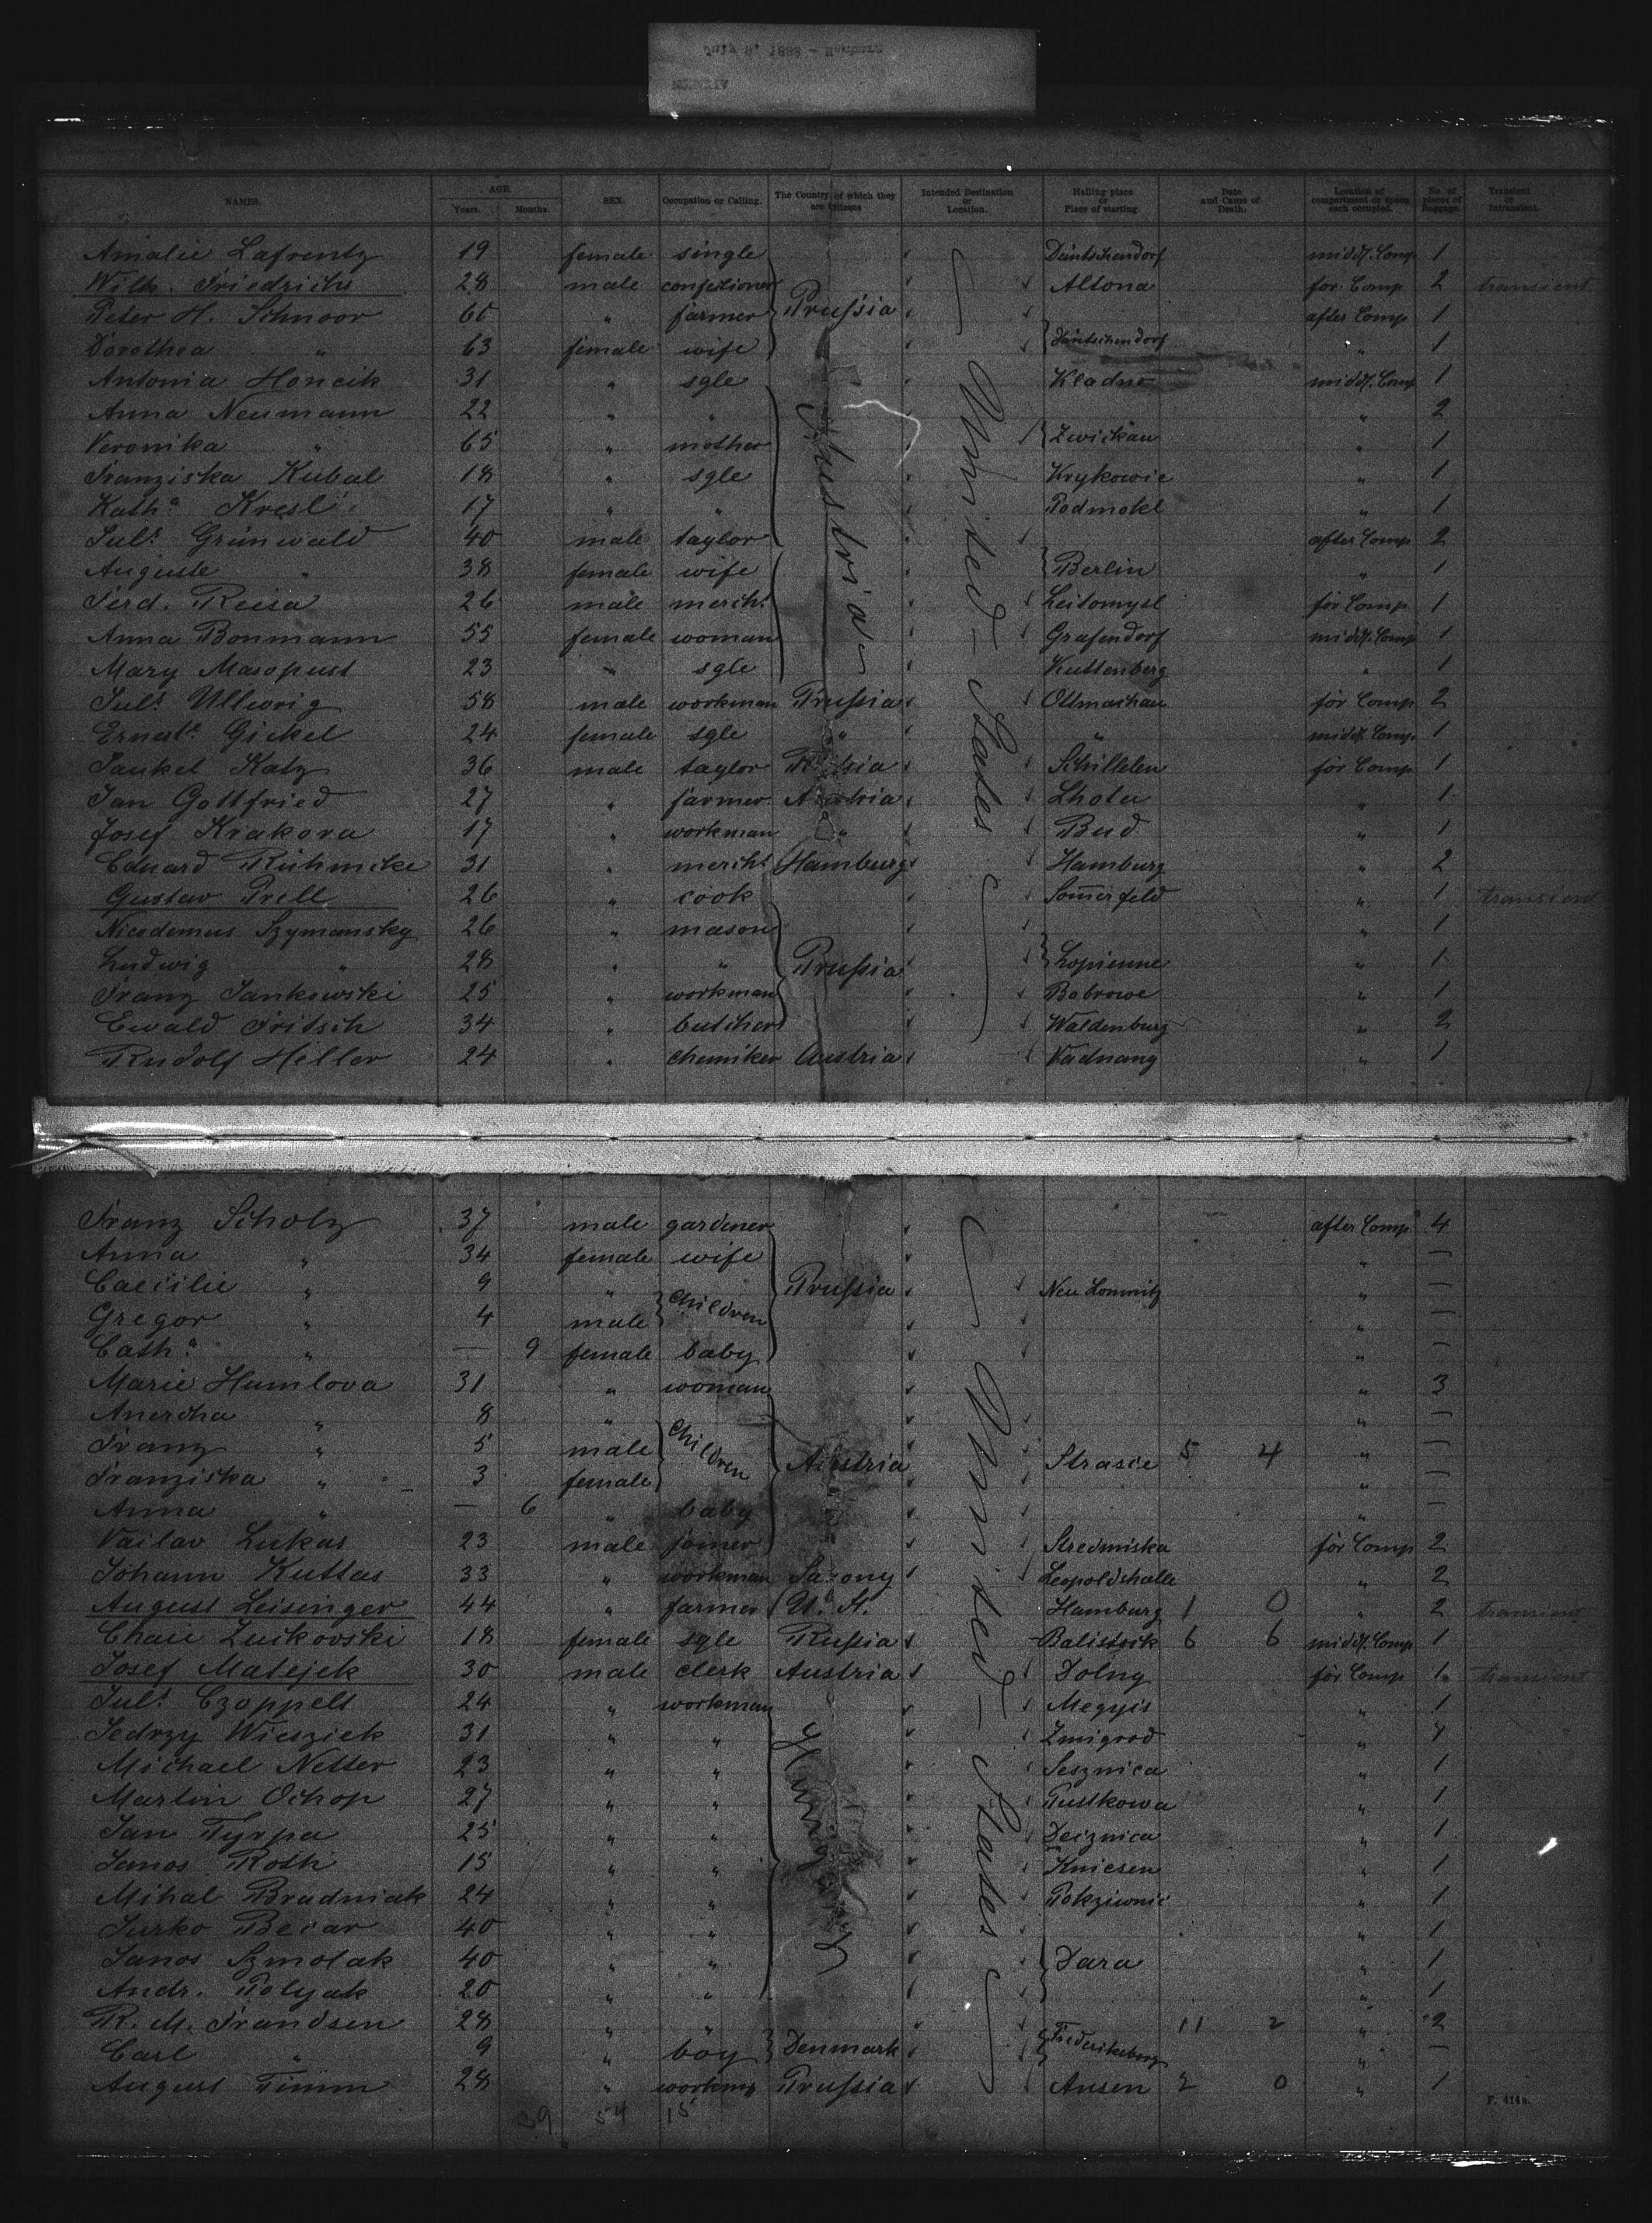 July 8, 1893 - Hamburg
NAMES. AGE. Years. Months. SEX. Occupation or Calling. The Country of which they are Citizens Intended Destination or Location. Halling place or Place of starting. Date and Cause of Death. Location of compartment or space each occupied. No. of pieces of Baggage. Transient or Intransient.
Amalie Lafrentz 19 female single middl. Comp 1
Wilh. Friedrichs 28 male Altona for. Comp 2 transient
Peter H. Schnoor farmer Prussia after Comp 1
Dorothea " 63 female wife " 1
Antonia Honcik 31 " sgle Kladno middl. Comp 1
Anna Neumann 22 " " " 2
Veronika " 65 " mother Zwickau " 1
Franziska Kubal 18 " sgle Krykowic " 1
Kath.a Kresl 17 " " Podmokl " 1
Austria
United States
Jul.s Grünwald 40 male taylor after Comp 2
Auguste " 38 female wife Berlin " 1
Ferd. Reisa 26 male mercht Leitomysl for Comp 1
Anna Bonmann 55 female woman Grafendorf middl. Comp 1
Mary Masopust 23 " sgle Kuttenberg " 1
Jul.s Ullwrig 58 male workman Prussia Ottmachau for Comp 2
Ernest.e Gickel 24 female sgle " " middl. Comp. 1
Jankel Katz 36 male taylor Russia Schillelen for Comp 1
Jan Gottfried 27 " farmer Austria Lhota " 1
Josef Krakora 17 " workman " Bud " 1
Eduard Rühmcke 31 " mercht Hamburg Hamburg " 2
Gustav Prell 26 " cook Somerfeld " 1 transient
Nicodemus Szymansky 26 " mason " 1
Ludwig " 28 " " Prussia Lopienne " 1
Franz Jankowski 25 " workman Bobrowe " 1
Ewald Fritsch 34 " butcher Waldenburg " 2
Rudolf Hiller 24 " chemiker Austria Vadnang " 1
Franz Scholz 37 male gardener after Comp 4
Anna " 34 female wife " —
Caecilie " 9 " Children Prussia Neu Lomnitz " —
Gregor " 4 male " —
Cath.a " — 9 female baby " —
Marie Humlova 31 " woman " 3
Anercha " 8 " Children " —
Franz " 5 male Austria Strasic 5 4 " —
Franziska " 3 female " —
Anna " — 6 " baby " —
Vaclav Lukas 23 male joiner Stredmiska for Comp 2
Johann Kuttas 33 " workman Saxony Leopoldshalle " 2
August Leisinger 44 " farmer U. St. Hamburg 1 0 " 2 transient
Chaie Zuikovski 18 female sgle Russia Balistok 6 6 middl. Comp 1
Josef Matejek 30 male clerk Austria Dolny for Comp 1 transient
United States
Jul.s Czoppelt 24 " workman Megyis " 1
Jedrzy Wiesziek 31 " " Zmigrod "
Michael Netter 23 " " Sesznica " 1
Martin Ochop 27 " " Pustkowa " 1
Jan Tyrpa 25 " " Deiznica " 1
Janos Roth 15 " " Kniesen " 1
Mihal Brudniak 24 " " " 1
Jurko Becar 40 " " " 1
Janos Szmolak 40 " " Dara " 1
Andr. Polyak 20 " " " 1
R. M. Frandsen 28 " " 11 2 " 2
Carl " 9 " boy Denmark Frederiksberg " —
August Timm 28 " workmn Prussia Ansen 2 0 " 1
39 54 15
F. 414a.